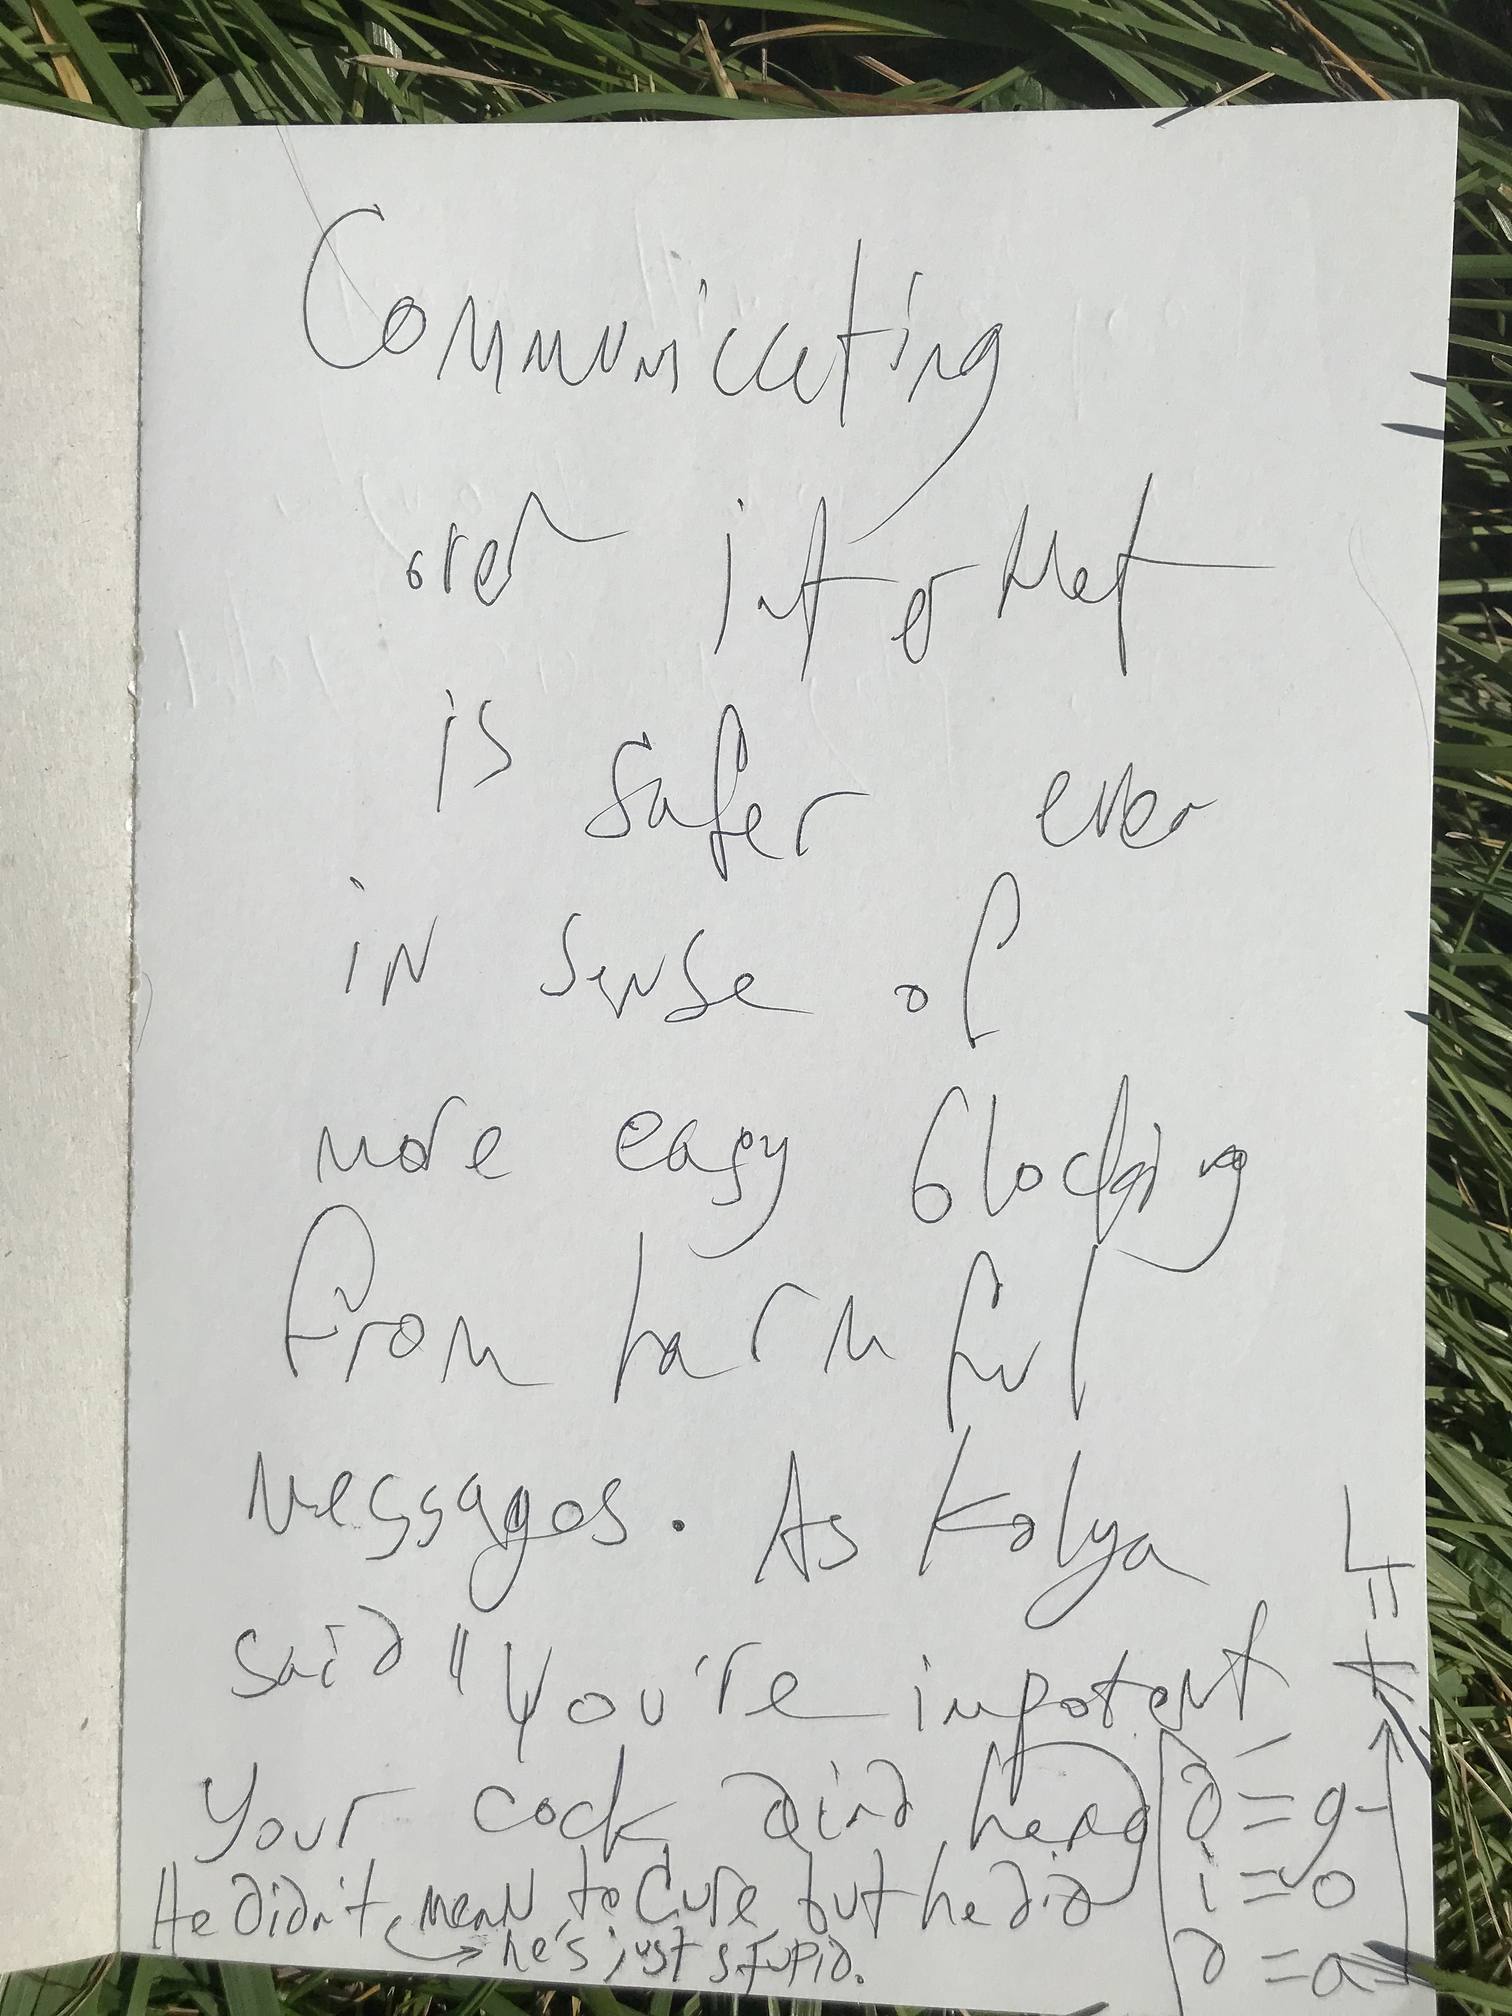 Communicating
over internet
is safer even
in sense of
more easy blocking
from harmful
messages. As Kolya
said "You're impotent
Your cock dind
He didn't mean to Cure but he did
he's just stupid.
L = t
d = g
i = o
d = a